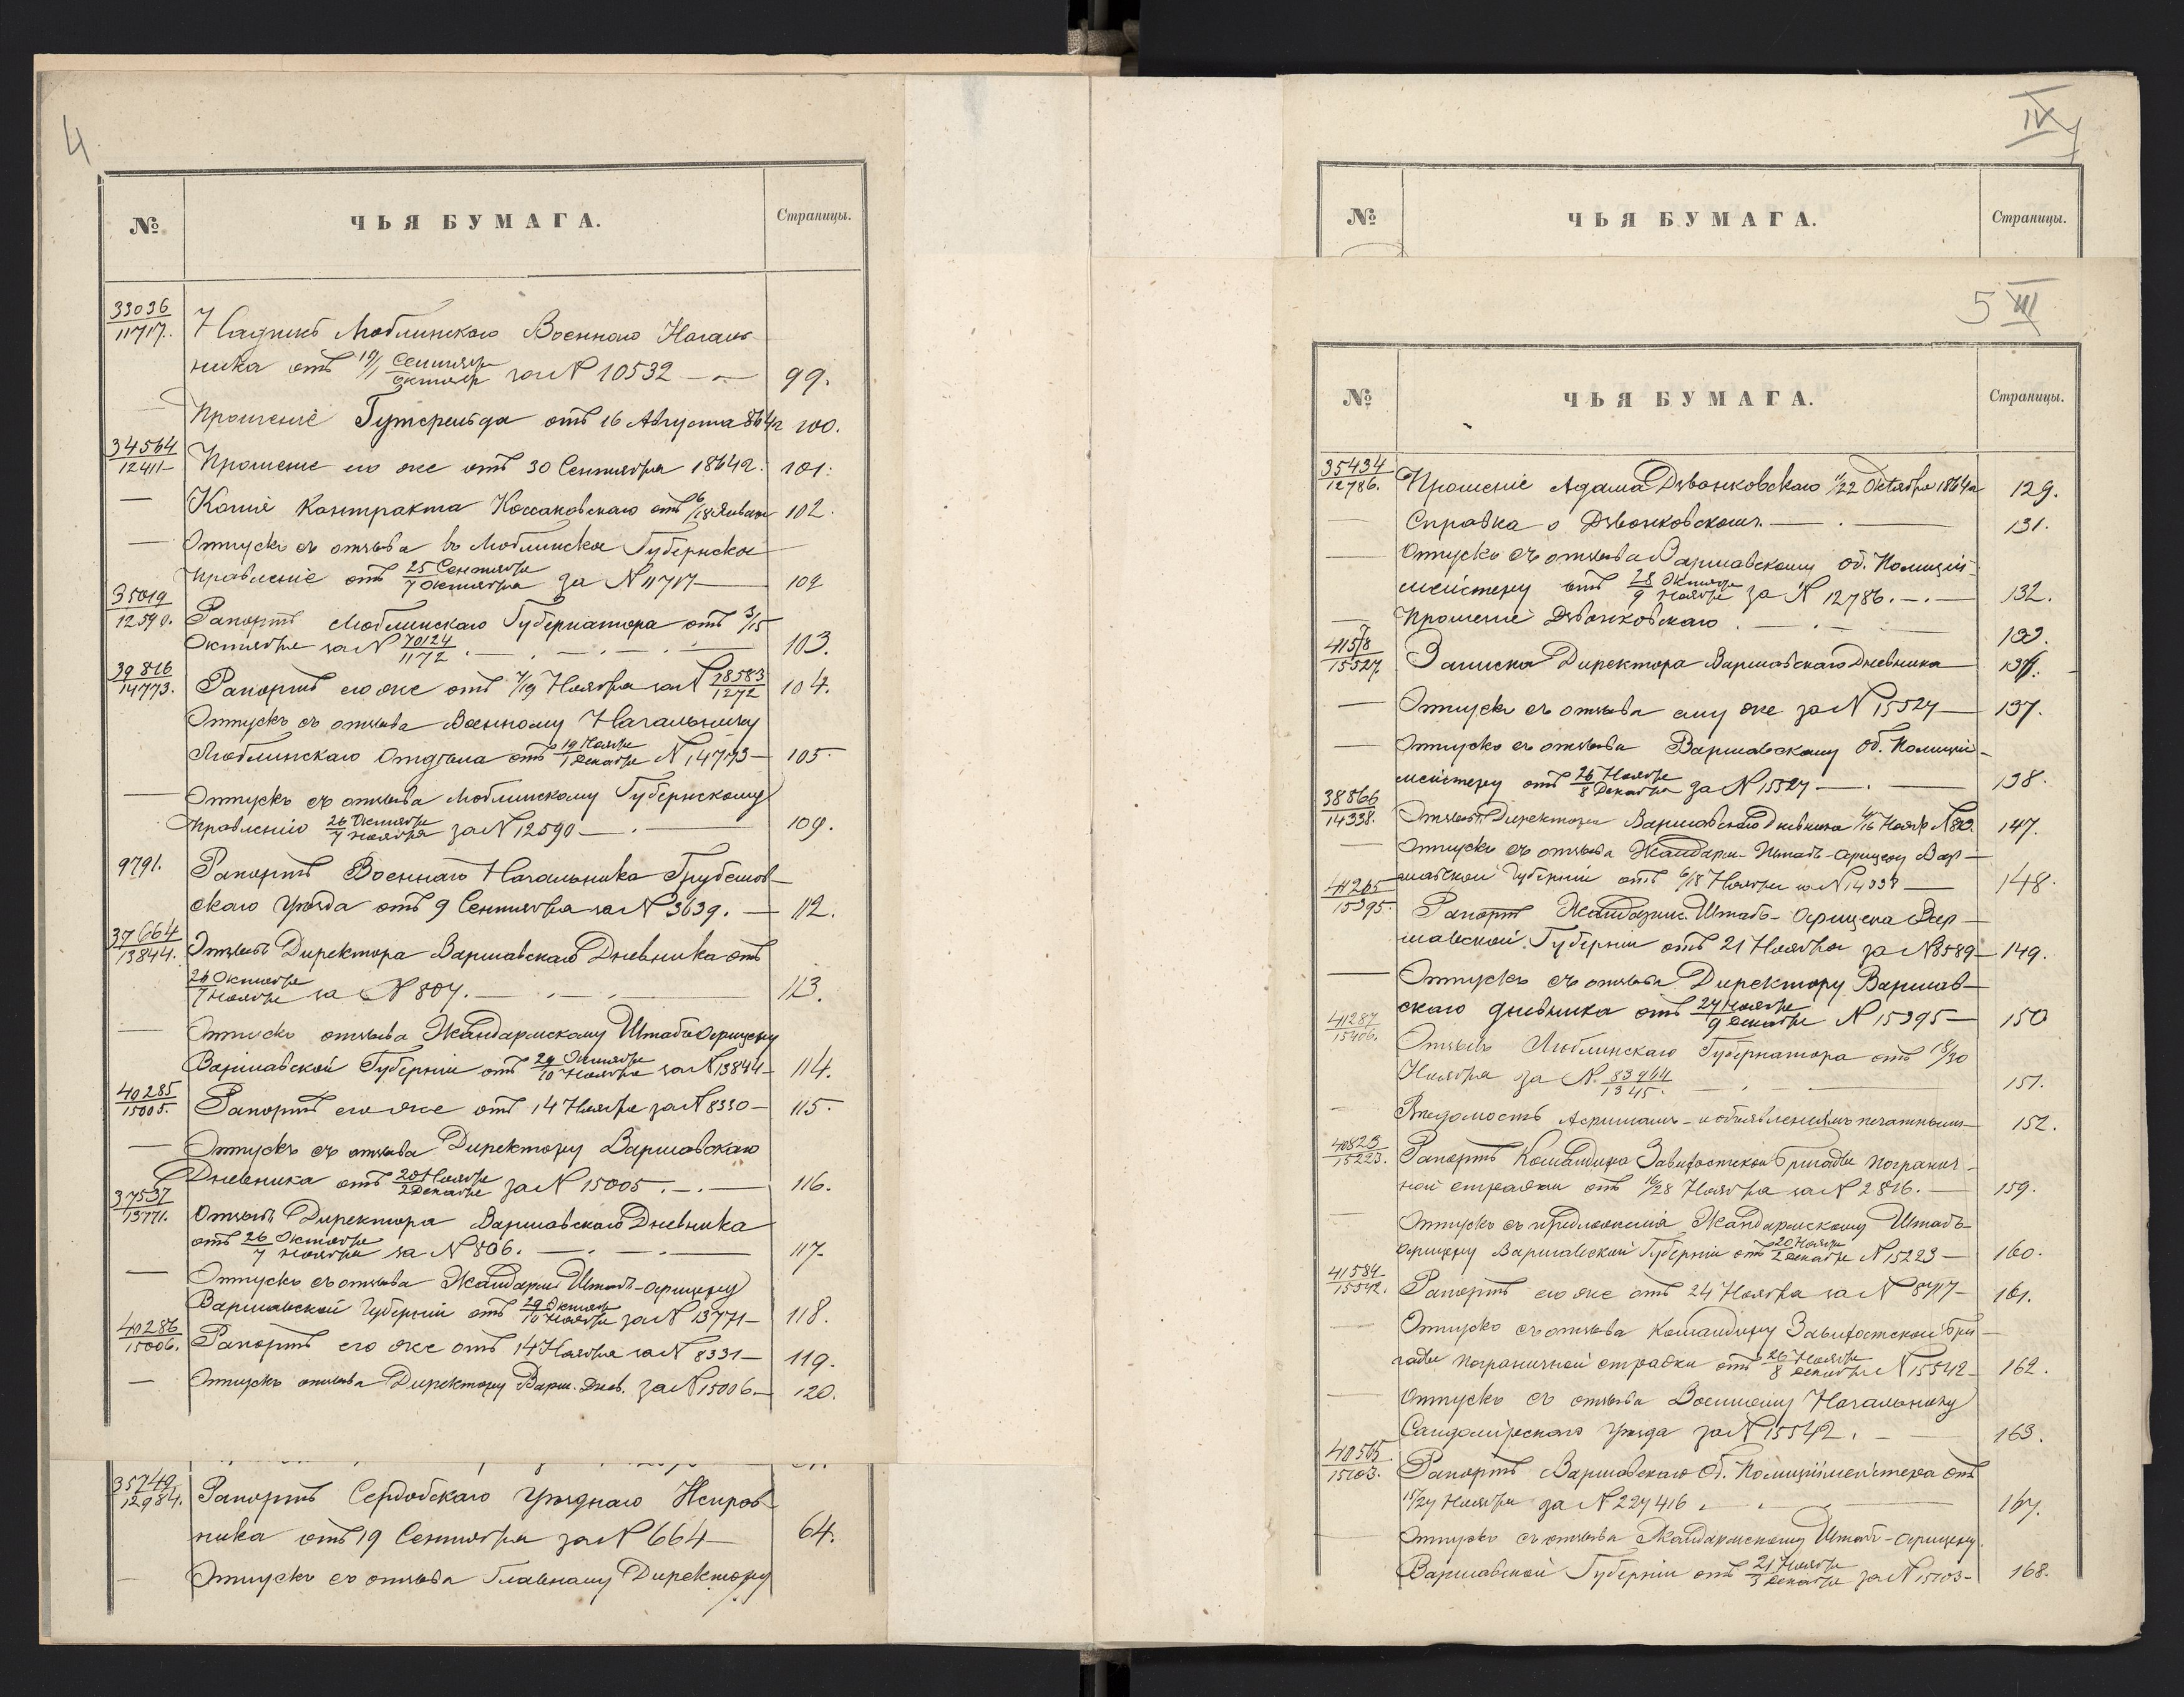 4
№ ЧЬЯ БУМАГА. Страницы.
33036
11717. Надпись Люблинскаго Военнаго Началь-
ника отъ 19/1 Сентября/Октябр за N 10532 — 99.
— Прошеніе Гутерельда отъ 16 Августа 864 г 100.
34564
12411 — Прошеніе его же отъ 30 Сентября 1864 г. 101.
— Копія Контракта Коссаковскаго отъ 6/18 Январ 102.
— Отпускъ съ отзыва въ Люблинское Губернское
Правленіе отъ 25 Сентября/7 Октября за N 11717 — 102
35019
12590. Рапортъ Люблинскаго Губернатора отъ 3/15
Октября за N 70124/1172 — 103.
39816
14773. Рапортъ его же отъ 7/19 Ноября за N 78583/1272 104.
Отпускъ съ отзыва Военному Начальнику
Люблинскаго Отдѣла отъ 19 Ноября/1 Декабря N 14773 — 105.
— Отпускъ съ отзыва Люблинскому Губернскому
Правленію 26 Октября/7 Ноября за N 12590 — 109.
9791. Рапортъ Военнаго Начальника Грубешов-
скаго уѣзда отъ 9 Сентября за N 3639. — 112.
37664
13844. Отзывъ Директора Варшавскаго Дневника отъ
26 Октября/7 Ноября за N 807. — 113.
— Отпускъ отзыва Жандармскому Штабъ офицеру
Варшавской Губерніи отъ 29 Октября/10 Ноября за N 13844 — 114.
40285
15005. Рапортъ его же отъ 14 Ноября за N 8330 — 115.
— Отпускъ съ отзыва Директору Варшавскаго
Дневника отъ 20 Ноября/2 Декабря за N 15005. — 116.
37537
13771. Отзывъ Директора Варшавскаго Дневника
отъ 26 Октября/7 Ноября за N 806. — 117.
— Отпускъ съ отзыва Жандарм. Штабъ-офицеру
Варшавской Губерніи отъ 29 Октября/10 Ноября за N 13771 — 118.
40286
15006. Рапортъ его же отъ 14 Ноября за N 8331 — 119.
— Отпускъ отзыва Директору Варш. Днев. за N 15006. — 120.
35749
12984. Рапортъ Сердобскаго Уѣзднаго Исправ-
ника отъ 19 Сентября за N 664 — 64.
— Отпускъ съ отзыва Главному Директору
IV
№ ЧЬЯ БУМАГА. Страницы.
5 III
№ ЧЬЯ БУМАГА. Страницы.
35434
12786. Прошеніе Адама Дзвонковскаго 11/22 Октября 1864 г 129.
— Справка о Дзвонковскомъ. — 131.
— Отпускъ съ отзыва Варшавскому Об. Полицій-
мейстеру отъ 28 Октября/9 Ноября за N 12786. — 132.
— Прошеніе Дзвонковскаго — 133.
41578
15527. Записка Директора Варшавскаго Дневника — 136.
— Отпускъ съ отзыва ему же за N 15527 — 137.
— Отпускъ съ отзыва Варшавскому Об. Полицій-
мейстеру отъ 26 Ноября/8 Декабря за N 15527 — 138.
38866
14338. Отзывъ Директора Варшавскаго Дневника 4/16 Нояб N 820. 147.
— Отпускъ съ отзыва Жандарм. Штабъ-офицеру Вар-
шавской Губерніи отъ 6/18 Ноября за N 14338 — 148.
41265
15395. Рапортъ Жандарм. Штабъ-офицера Вар-
шавской Губерніи отъ 21 Ноября за N 8589 — 149.
— Отпускъ съ отзыва Директору Варшав-
скаго Дневника отъ 27 Ноября/9 Декабря N 15395 — 150
41287
15406. Отзывъ Люблинскаго Губернатора отъ 18/30
Ноября за N. 83964/1345. — 151.
— Вѣдомость Афишамъ и объявленіямъ печатнымъ — 152.
40823
15223. Рапортъ Командира Завихостской Бригады Погранич-
ной стражи отъ 16/28 Ноября за N 2816. — 159.
— Отпускъ съ предложенія Жандармскому Штабъ-
офицеру Варшавской Губерніи отъ 20 Ноября/2 Декабря N 15223 — 160.
41584
15542. Рапортъ его же отъ 24 Ноября за N 8717 — 161.
— Отпускъ съ отзыва Командиру Завихостской Бри-
гады Пограничной стражи отъ 26 Ноября/8 Декабря N 15542 — 162.
— Отпускъ съ отзыва Военному Начальнику
Сандомірскаго Уѣзда за N 15542. — 163.
40565
15103. Рапортъ Варшавскаго Об. Полиціймейстера отъ
15/27 Ноября за N 227416. — 167.
— Отпускъ съ отзыва Жандармскому Штабъ-офицеру
Варшавской Губерніи отъ 21 Ноября/3 Декабря за N 15103 — 168.